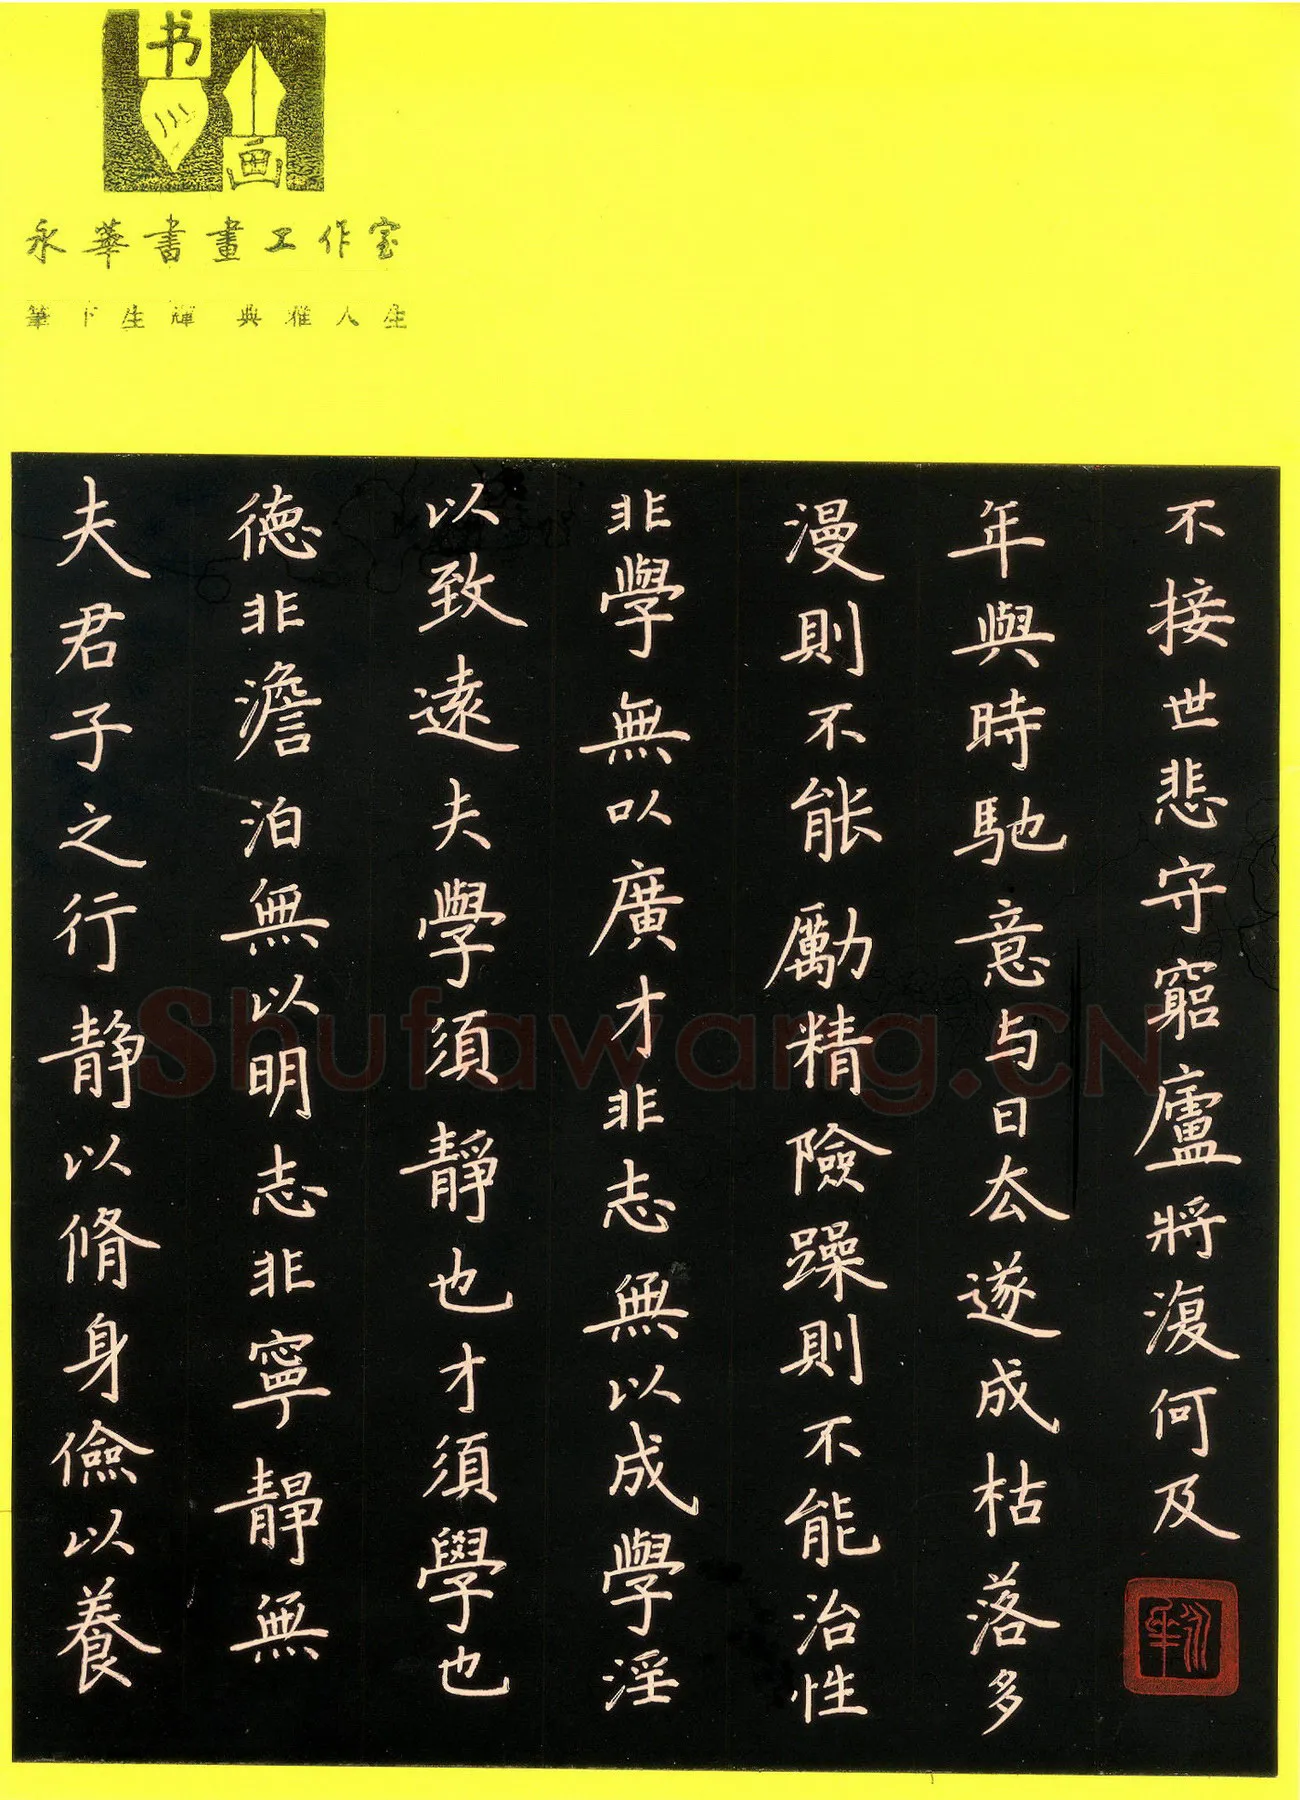 书
画
永華書畫工作室
筆下生輝 典雅人生
夫君子之行静以脩身儉以養
德非澹泊無以明志非寧靜無
以致遠夫學須靜也才須學也
非學無以廣才非志無以成學淫
漫則不能勵精險躁則不能治性
年與時馳意与日去遂成枯落多
不接世悲守窮廬將復何及
Shufawang.CN